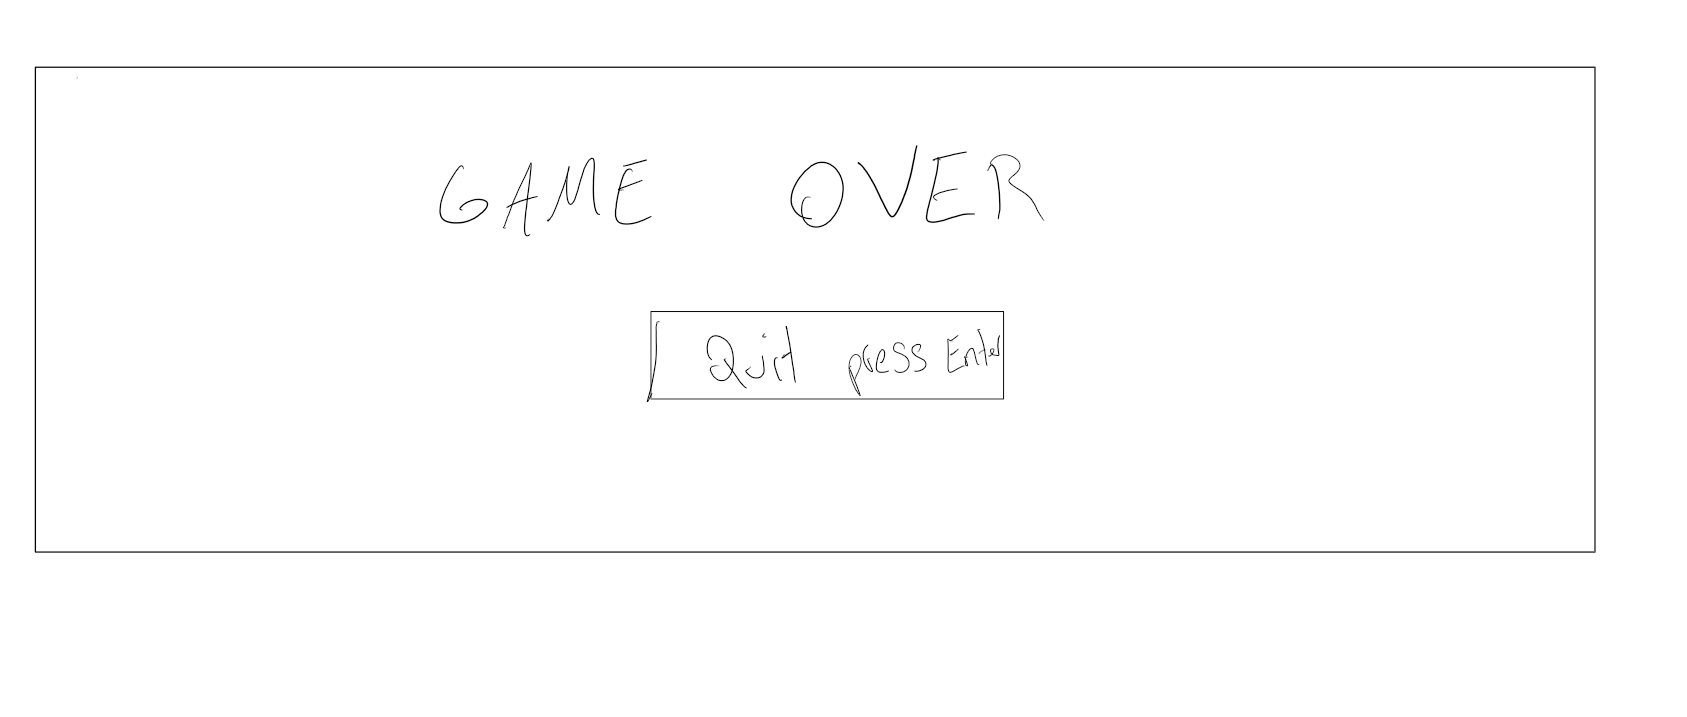 GAME OVER
Quit press Enter